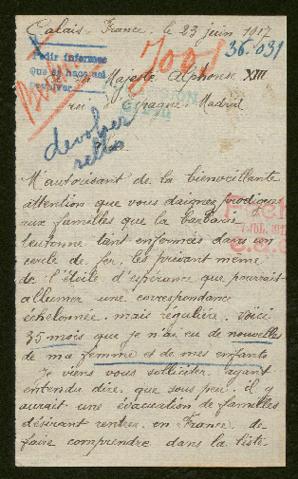 Calais - France, le 23 juin 1917
36.031
7001
Pedir informes
Majesté Alphonse XIII
Espagne. Madrid
devolver
sellos
M'autorisant de la bienveillante
attention que vous daignez prodiguer
aux familles que la barbarie
teutonne tant enfermées dans un
cercle de fer, les privant même
de l'étoile d'espérance que pourrait
allumer une correspondance
échelonnée mais régulière. Voici
35 mois que je n'ai eu de nouvelles
de ma femme et de mes enfants
Je viens vous solliciter ayant
entendu dire que sous peu il y
aurait une évacuation de familles
désirant rentrer en France de
faire comprendre dans la liste